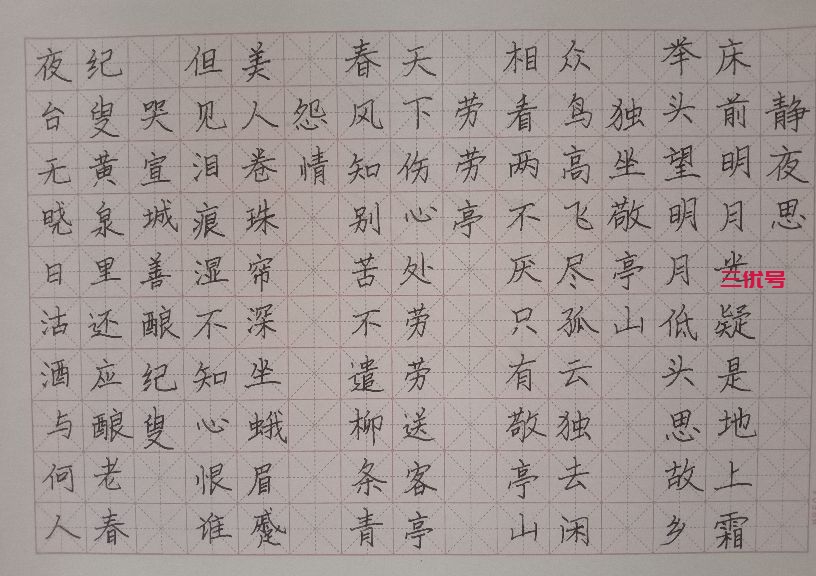 静夜思
床前明月光疑是地上霜
举头望明月低头思故乡
独坐敬亭山
众鸟高飞尽孤云独去闲
相看两不厌只有敬亭山
劳劳亭
天下伤心处劳劳送客亭
春风知别苦不遣柳条青
怨情
美人卷珠帘深坐蛾眉蹙
但见泪痕湿不知心恨谁
哭宣城善酿纪叟
纪叟黄泉里还应酿老春
夜台无晓日沽酒与何人
三优号